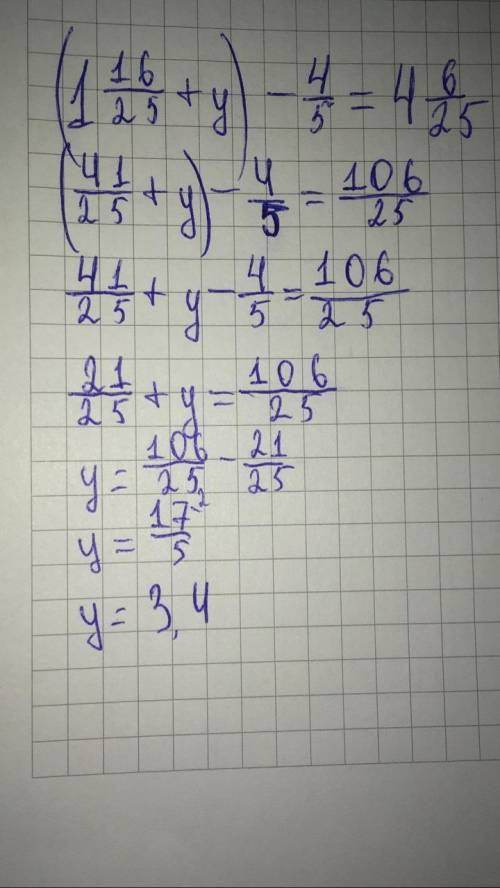 (1 16/25 + y) - 4/5 = 4 6/25
(41/25 + y) - 4/5 = 106/25
41/25 + y - 4/5 = 106/25
21/25 + y = 106/25
y = 106/25 - 21/25
y = 17/5
y = 3,4